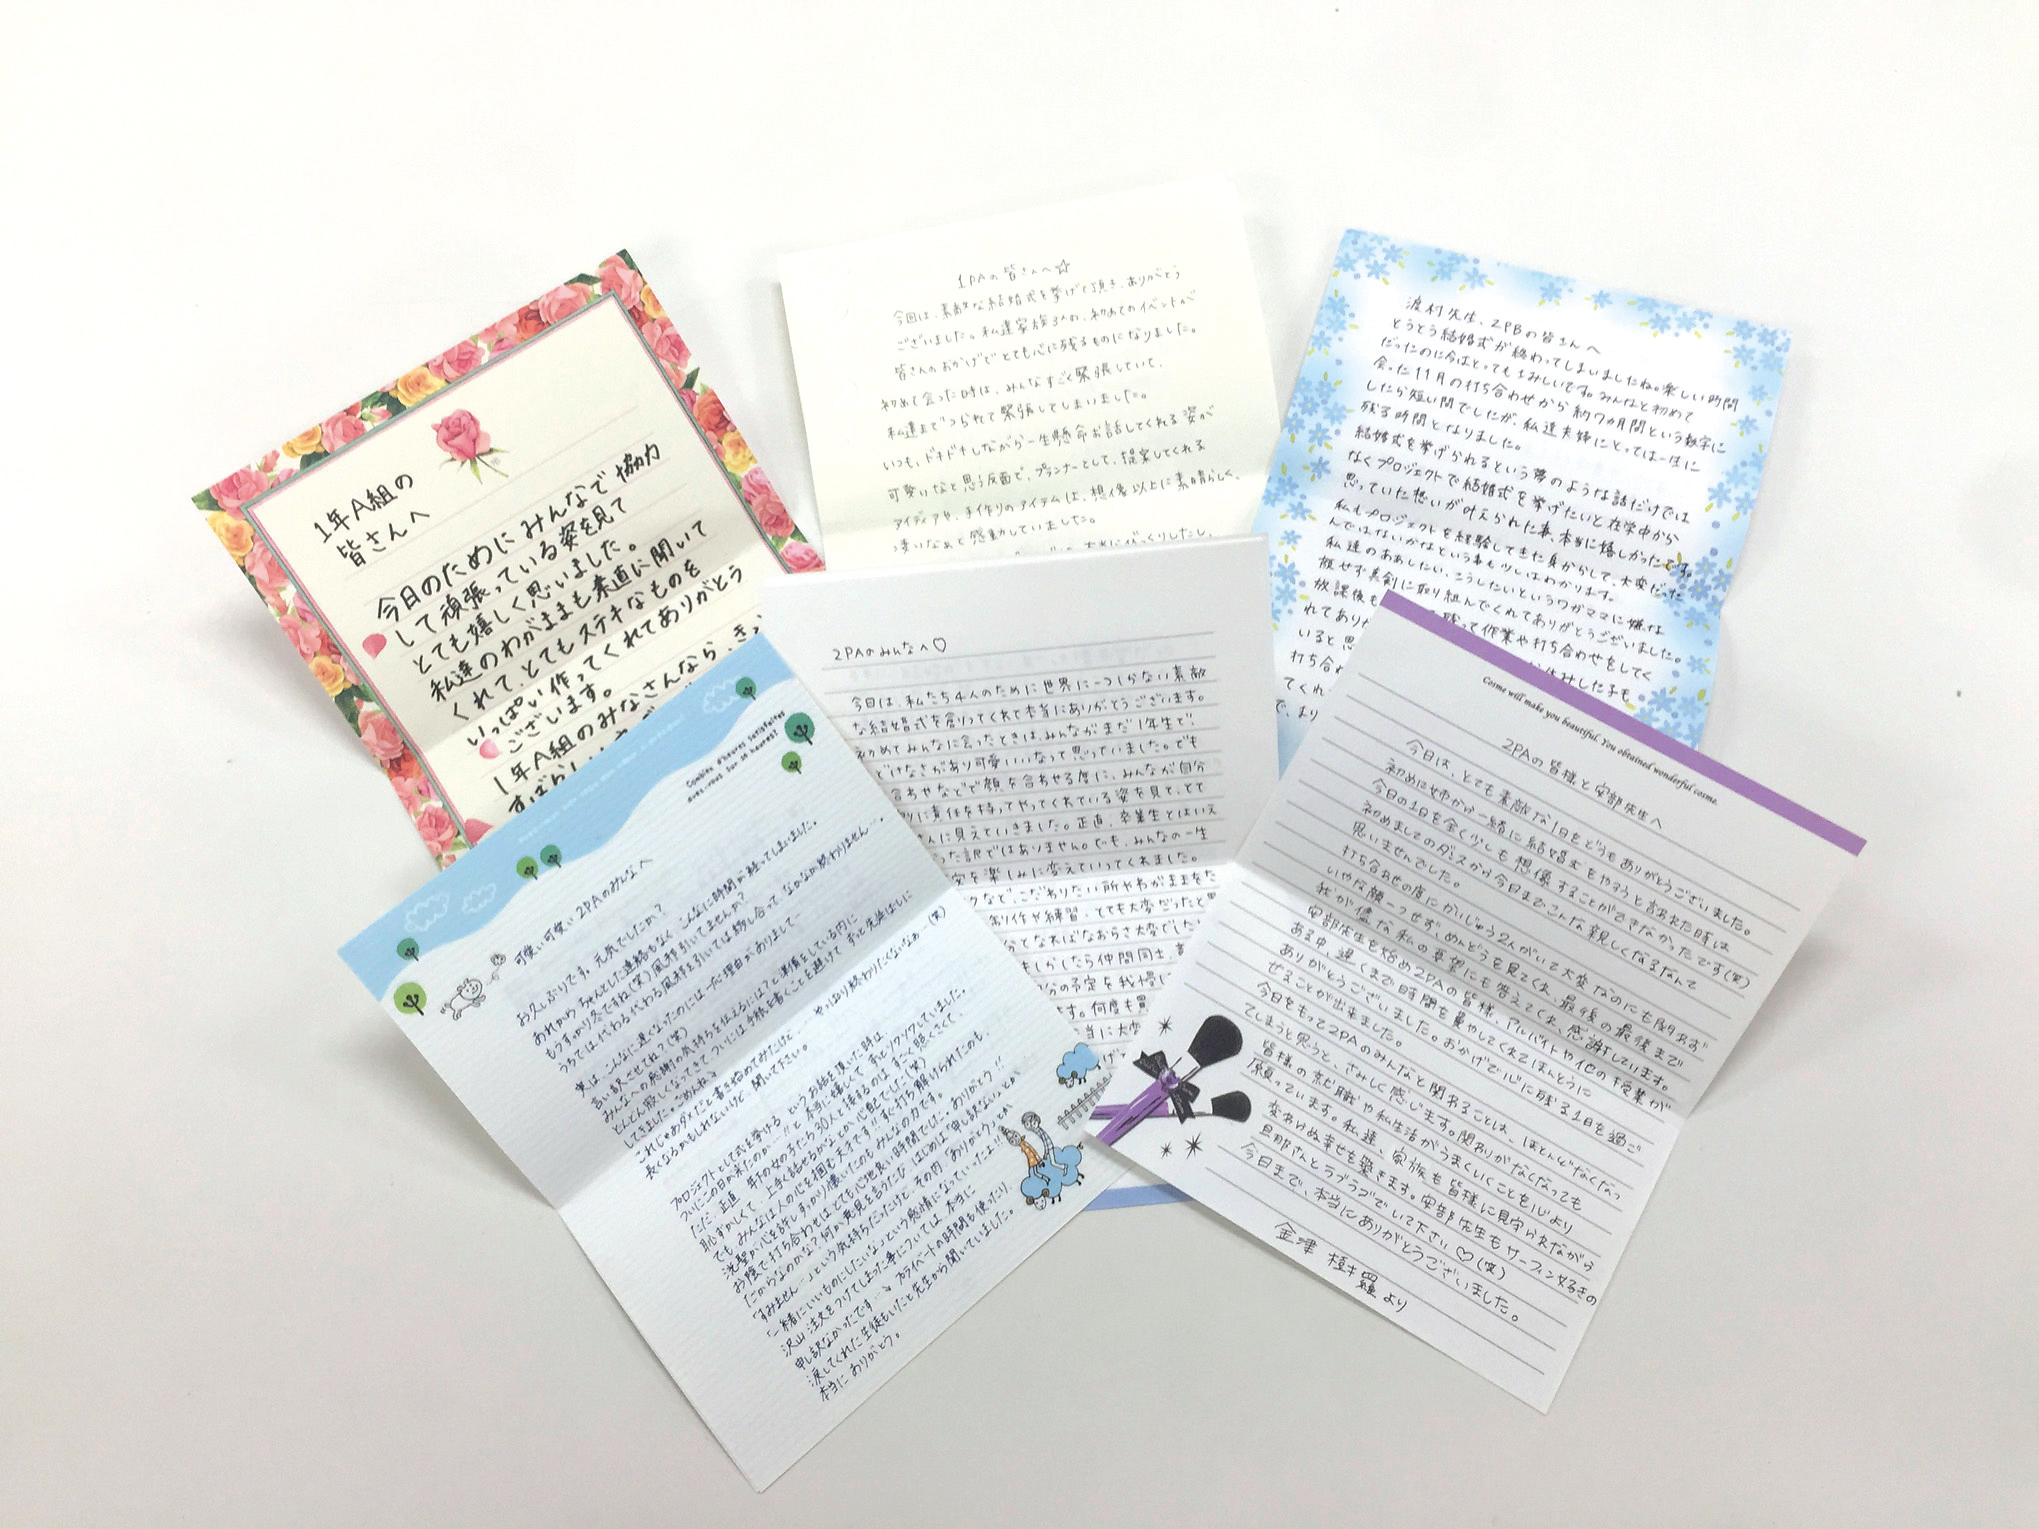 1年A組の
皆さんへ
今日のためにみんなで協力
して頑張っている姿を見て
とても嬉しく思いました。
私達のわがままも素直に聞いて
くれて、とてもステキなものを
いっぱい作ってくれてありがとう
ございます。
1年A組のみなさんなら、きっ
1PAの皆さんへ☆
今回は、素敵な結婚式を挙げて頂き、ありがとう
ございました。私達家族3人の、初めてのイベントが
皆さんのおかげでとても心に残るものになりました。
初めて会った時は、みんなすごく緊張していて、
私達までつられて緊張してしまいました。
いつも、ドキドキしながら一生懸命お話してくれる姿が
可愛いなと思う反面で、プランナーとして、提案してくれる
アイディアや、手作りのアイテムは、想像以上に素晴らしく、
凄いなぁと感動していました。
本当にびっくりしたし、
渡村先生、2PBの皆さんへ
とうとう結婚式が終わってしまいましたね。楽しい時間
だったのに今はとってもさみしいです。みんなと初めて
会った11月の打ち合わせから約7カ月間という数字に
したら短い間でしたが、私達夫婦にとっては一生に
残る時間となりました。
結婚式を挙げられるという夢のような話だけでは
なくプロジェクトで結婚式を挙げたいと在学中から
思っていた想いが叶えられた事、本当に嬉しかったです。
私もプロジェクトを経験してきた身からして、大変だった
んではないかなという事も少しはわかります。
私達のああしたい、こうしたいというワガママに嫌な
顔せず真剣に取り組んでくれてありがとうございました。
放課後も
残って作業や打ち合わせをしてく
れてあり
いると思
打ち合わ
2PAのみんなへ♡
今日は、私たち4人のために世界に一つしかない素敵
な結婚式を創りってくれて本当にありがとうございます。
初めてみんなに会ったときは、みんながまだ1年生で、
どけなさがあり可愛いいなって思っていました。でも
合わせなどで顔を合わせる度に、みんなが自分
に責任を持ってやってくれている姿を見て、とて
人に見えていきました。正直、卒業生とはいえ
った訳ではありません。でも、みんなの一生
安を楽しみに変えていってくれました。
クなど、こだわりたい所やわがままをた
制作や練習、とても大変だったと思
てなればなおらさ大変でした
もしかしたら仲間同士、
分の予定を我慢
ます。何度も買
当に大変
Combien d'heures satisfaites
avez-vous sur 24 heures?
可愛い可愛い2PAのみんなへ
お久しぶりです。元気でしたか？
あれから ちゃんとした連絡もなく、こんなに時間が経ってしまいました。
もうすっかり冬ですね(笑) 風邪引いてませんか？
うちでは代わる代わる風邪を引いては移し合って、なかなか終わりません…。
実は、こんなに遅くなったのには一応理由がありまして…
言い訳させてね？(笑)
みんなへの感謝の気持ちを伝えるには？と準備をしている内に
どんどん寂しくなってきて ついには手紙を書くことを避けて ずっと先延ばしに
してきました。ごめんね
これじゃあダメだと書き始めてみたけど… やっぱり終わりたくないなぁ…(笑)
長くなるかもしれないけど、聞いて下さい。
プロジェクトとして式を挙げる というお話を頂いた時は、
ついにこの日が来たのか…!! と本当に嬉しくて ずっとソワソワしていました。
ただ、正直、年下の女の子たち30人と接するのは すごく照くさくて、
恥ずかしくて… 上手く話せるかなとか 心配でした(笑)
でも みんなは人の心を掴む天才です!! すぐ打ち解けられたのも、
洸聖が心を許しすっかり懐いたのも みんなの力です。
お陰で打ち合わせは とても心地良い時間でした。ありがとう!!
だからなのかな？何か意見を言うたび はじめは「申し訳ない」とか
「すみません…」という気持ちだったけど、その内「ありがとう」とか
「一緒にいいものにしたいな」っという感情になっていったよ…!!
沢山 注文をつけてしまった事については 本当に
申し訳なかったです…、プライベートの時間も使ったり、
涙してくれた生徒もいたと先生から聞いていました。
本当に ありがとう。
Cosme will make you beautiful. You obtained wonderful cosme.
2PAの皆様と安部先生へ
今日は、とても素敵な1日をどうもありがとうございました。
初めに姉から一緒に結婚式をやろうと言われた時は
今日の1日を全く少しも想像することができなかったです(笑)
初めましてのダンスから今日までこんな親しくなるなんて
思いませんでした。
打ち合わせの度にかいじゅう2人がいて大変なのにも関わらず
いやな顔一つせず、めんどうを見てくれ、最後の最後まで
我が儘な私の要望にも答えてくれ、感謝しています。
安部先生を始め2PAの皆様、アルバイトや他の授業が
ある中、遅くまで時間を費やしてくれてほんとうに
ありがとうございました。おかげで心に残る1日を過ご
せることが出来ました。
今日をもって2PAのみんなと関わることは、ほとんどなくなっ
てしまうと思うと、さみしく感じます。関わりがなくなっても
皆様の就職や私生活がうまくいくことを心より
願っています。私達、家族も皆様に見守られながら
変わらぬ幸せを築きます。安部先生もサーフィン好きの
旦那さんとラブラブでいて下さい♡(笑)
今日まで、本当にありがとうございました。
金津 樹羅 より